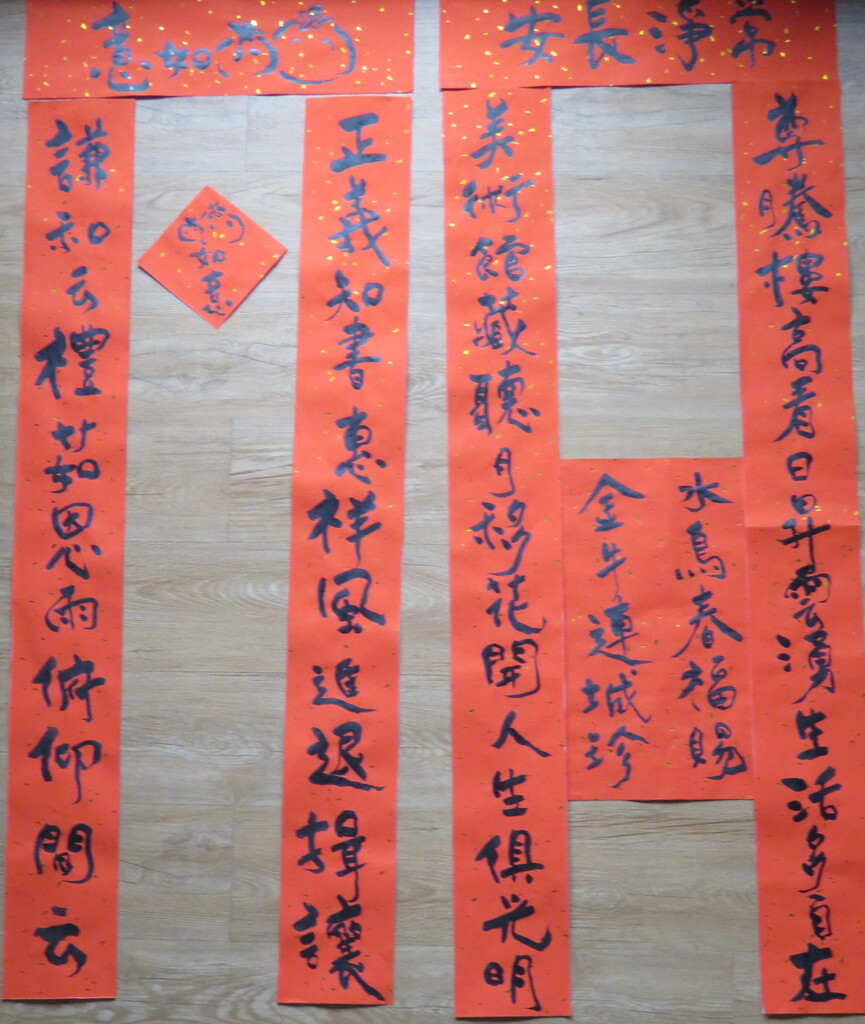 常淨長安
尊騰樓高看日昇雲湧生活多自在
美術館藏聽月移花開人生俱光明
水鳥春福賜
金牛連城珍
如意
正義知書惠祥風進退揖讓
謙和云禮茹恩雨俯仰間云
如意